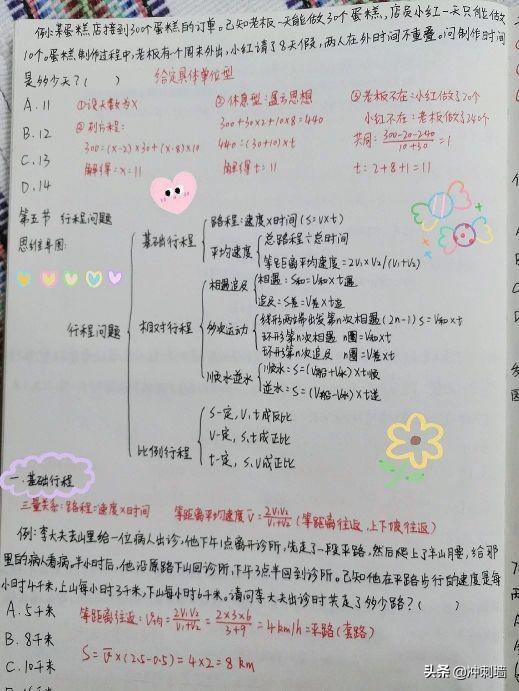 例:某蛋糕店接到300个蛋糕的订单。已知老板一天能做30个蛋糕,店员小红一天只能做
10个。蛋糕制作过程中,老板有个周末外出,小红请了8天假,两人在外时间不重叠。问制作时间
是多少天?( ) 给定具体单位型
A. 11 ①设天数为x ②休息型:显示思想 ③老板不在:小红做了20个
B. 12 ②列方程: 300+30×2+10×8=440 小红不在:老板做了240个
300=(x-2)×30+(x-8)×10 440=(30+10)×t 共同:(300-20-240)/(10+30)=1
C. 13 解得:x=11 解得 t=11 t=2+8+1=11
D. 14
第五节 行程问题
思维导图:
行程问题
基础行程
路程=速度×时间(S=V×t)
平均速度
总路程÷总时间
等距离平均速度=2V₁V₂/(V₁+V₂)
相对行程
相遇追及
相遇:S和=V和×t遇
追及:S差=V差×t追
多次运动
线形两端出发第n次相遇(2n-1)S=V和×t
环形第n次相遇 n圈=V和×t
环形第n次追及 n圈=V差×t
顺水逆水
顺水:S=(V船+V水)×t顺
逆水=S=(V船-V水)×t逆
比例行程
S一定,V,t成反比
V一定,S,t成正比
t一定,S,V成正比
一.基础行程
三量关系:路程=速度×时间 等距离平均速度V̄=2V₁V₂/(V₁+V₂)(等距离往返,上下坡往返)
例:李大夫去山里给一位病人出诊,他下午1点离开诊所,先走了一段平路,然后爬上了半山腰,给那
里的病人看病。半小时后,他沿原路下山回诊所,下午3点半回到诊所。已知他在平路步行的速度是每
小时4千米,上山每小时3千米,下山每小时6千米。请问李大夫出诊时共走了多少路?( )
A. 5千米 等距离往返:V均=2V₁V₂/(V₁+V₂)=2×3×6/(3+9)=4km/h=平路(套路)
B. 8千米
C. 10千米 S=V̄×(2.5-0.5)=4×2=8 km
头条@冲刺墙